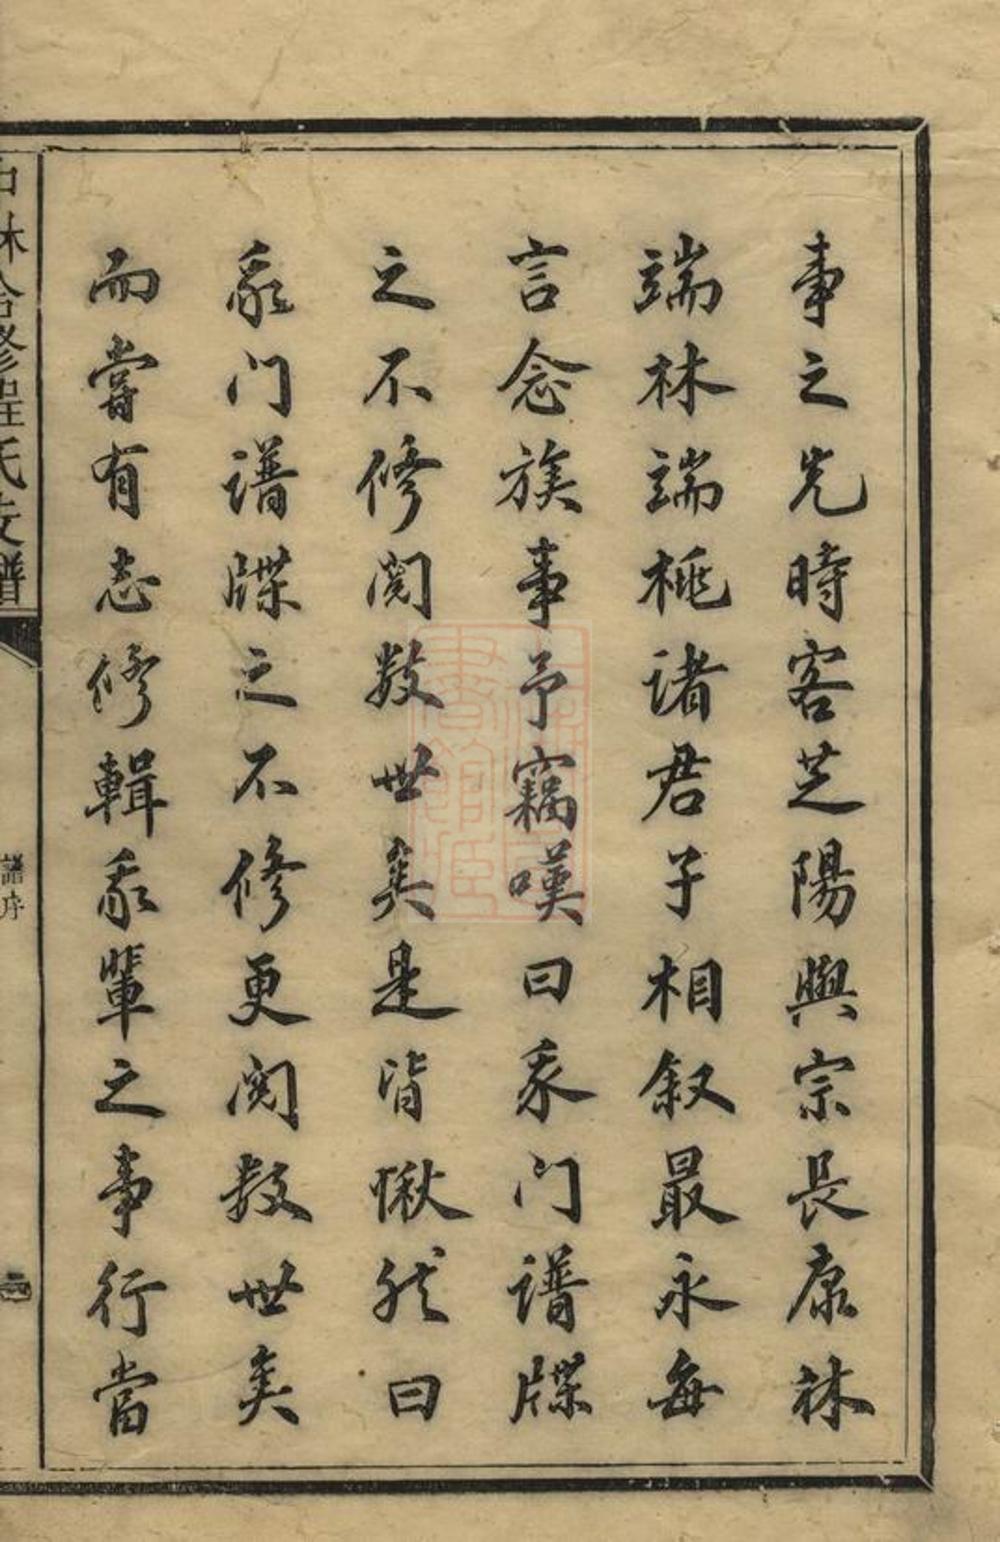 事之先時客芝陽與宗長康林
端林端桃諸君子相叙最永每
言念族事予竊嘆曰承门譜牒
之不修閲数世矣是皆愀然曰
承门譜牒之不修更閲数世矣
而嘗有志修輯承輩之事行當
林合修程氏支譜
譜序